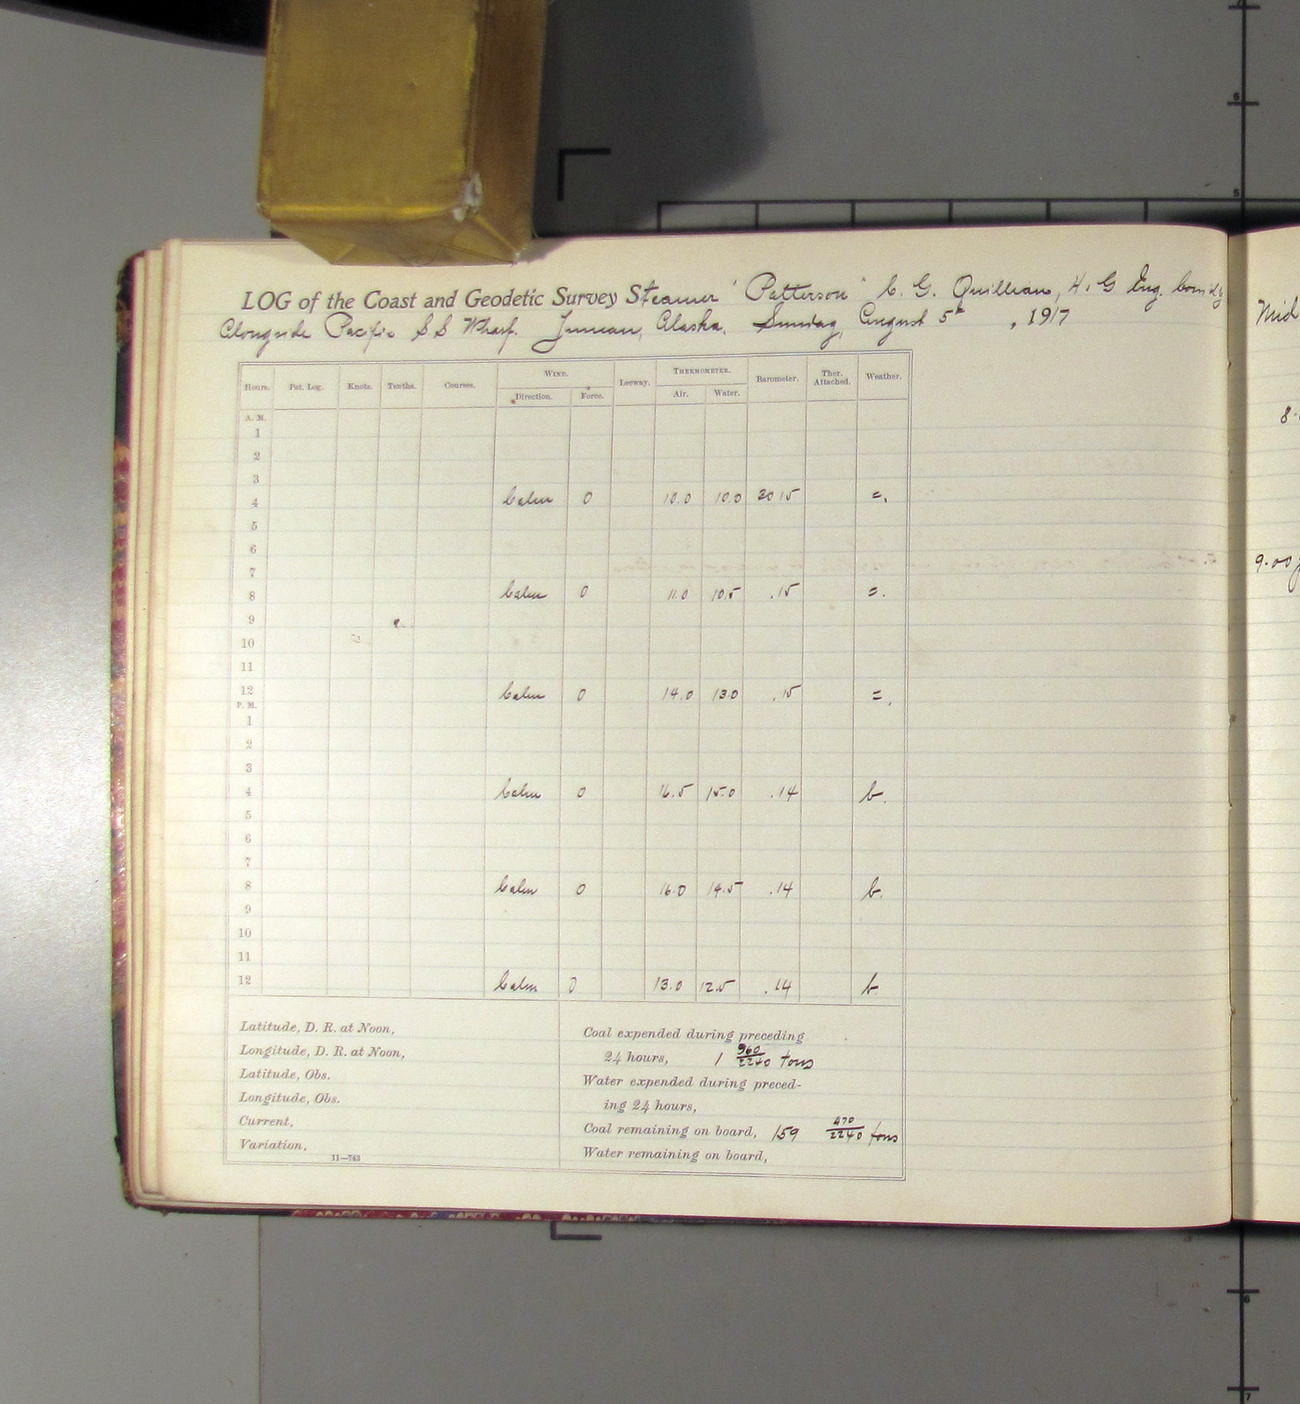 LOG of the Coast and Geodetic Survey Steamer "Patterson" C. G. Quillian, H. & G Eng. Comdg
Alongside Pacific SS Wharf. Juneau, Alaska. Sunday, August 5th, 1917
Hours. Pat. Log. Knots. Tenths. Courses. WIND. Direction. Force. Leeway. THERMOMETER. Air. Water. Barometer. Ther. Attached. Weather.
A. M.
1
2
3
4 Calm 0 10.0 10.0 30 15 =.
5
6
7
8 Calm 0 11.0 10.5 .15 =.
9
10
11
12 Calm 0 14.0 13.0 .15 =.
P. M.
1
2
3
4 Calm 0 16.5 15.0 .14 b.
5
6
7
8 Calm 0 16.0 14.5 .14 b.
9
10
11
12 Calm 0 13.0 12.5 .14 b.
Latitude, D. R. at Noon,
Longitude, D. R. at Noon,
Latitude, Obs.
Longitude, Obs.
Current,
Variation,
11—743
Coal expended during preceding
24 hours, 1 960/2240 tons
Water expended during preced-
ing 24 hours,
Coal remaining on board, 159 470/2240 tons
Water remaining on board,
Mid
9.00